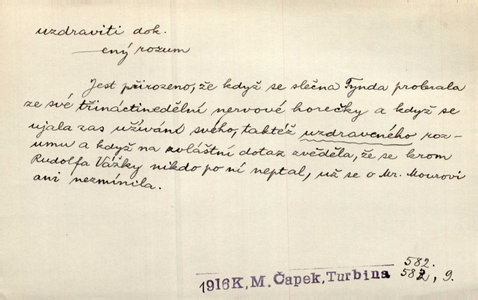 uzdraviti dok.
—ený rozum
Jest přirozeno, že když se slečna Tynda probrala
ze své třináctinedělní nervové horečky a když se
ujala zas užívání svého, taktéž uzdraveného roz-
umu a když na zvláštní dotaz zvěděla, že se krom
Rudolfa Vážky nikdo po ní neptal, už se o Mr. Mourovi
ani nezmínila.
582.
1916 K. M. Čapek, Turbina 582, 9.